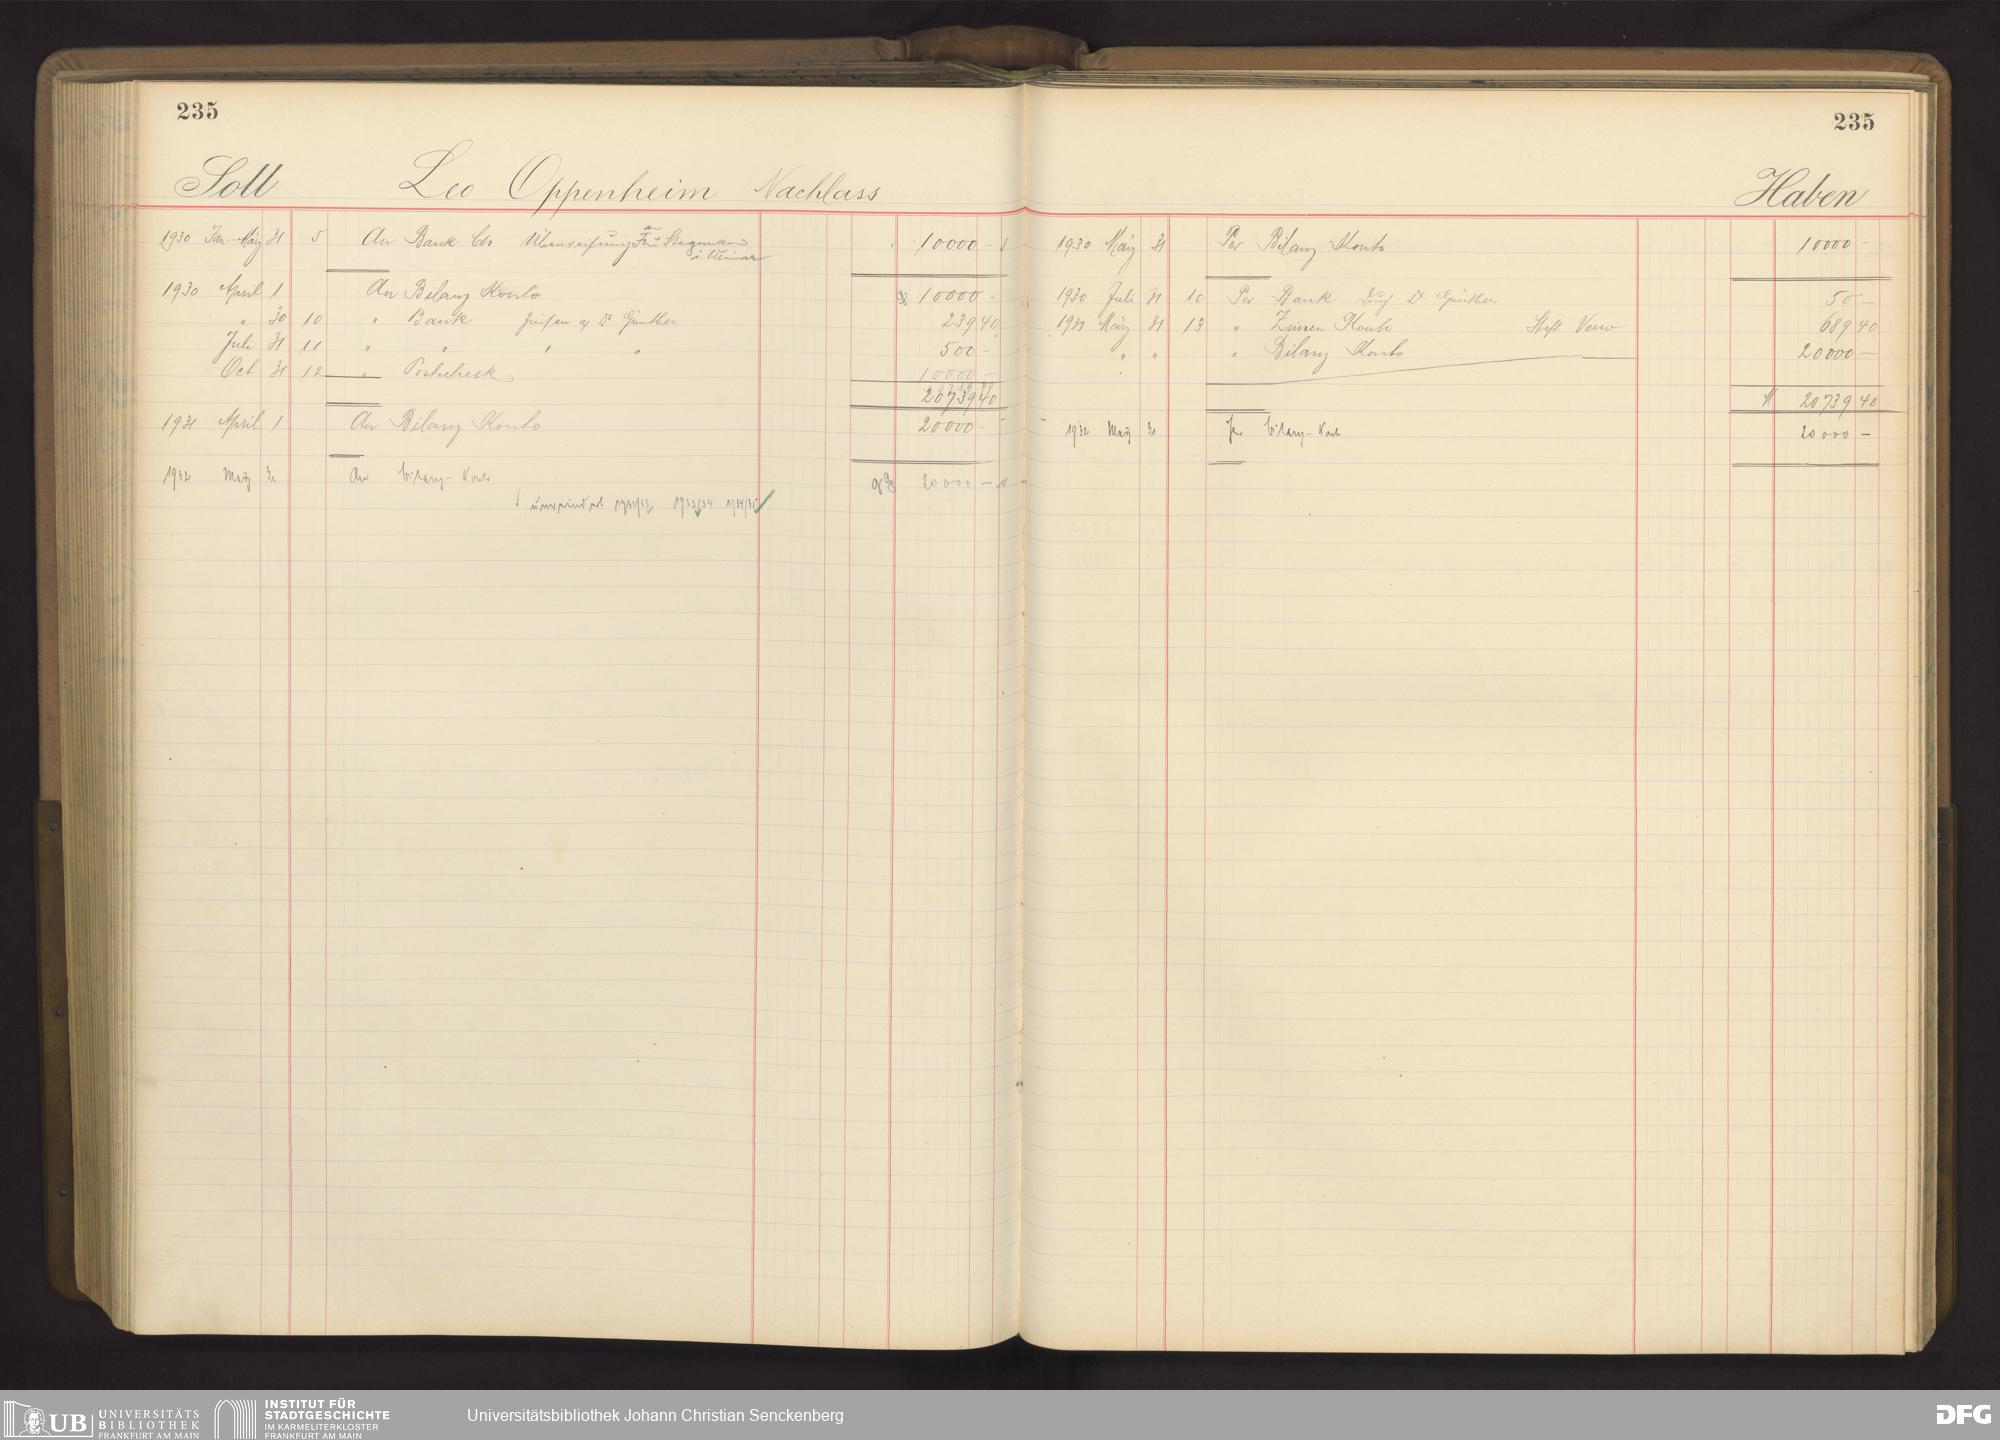 235
Soll Leo Oppenheim Nachlass
1930 Jan.-März 31 5 An Bank Cto Überweisung Frau Stegmann 10000 -
i. Weimar
1930 April 1 An Bilanz Konto 10000 -
" 30 10 " Bank Zinsen a/ Dr Günther 239 40
Juli 31 11 " " " " 500 -
Oct 31 12 " Postscheck 10000 -
20739 40
1931 April 1 An Bilanz Konto 20000 -
1932 März 31 An Bilanz-Konto 20000 -
unverändert 1932/33 1933/34 1934/35
235
Haben
1930 März 31 Per Bilanz Konto 10000 -
1930 Juli 31 10 Per Bank durch Dr Günther 50 -
1931 März 31 13 " Zinsen Konto Stift. Verw 689 40
" " " Bilanz Konto 20000 -
20739 40
1932 März 31 Per Bilanz-Konto 20000 -
UB UNIVERSITÄTS
BIBLIOTHEK
FRANKFURT AM MAIN
INSTITUT FÜR
STADTGESCHICHTE
IM KARMELITERKLOSTER
FRANKFURT AM MAIN
Universitätsbibliothek Johann Christian Senckenberg
DFG